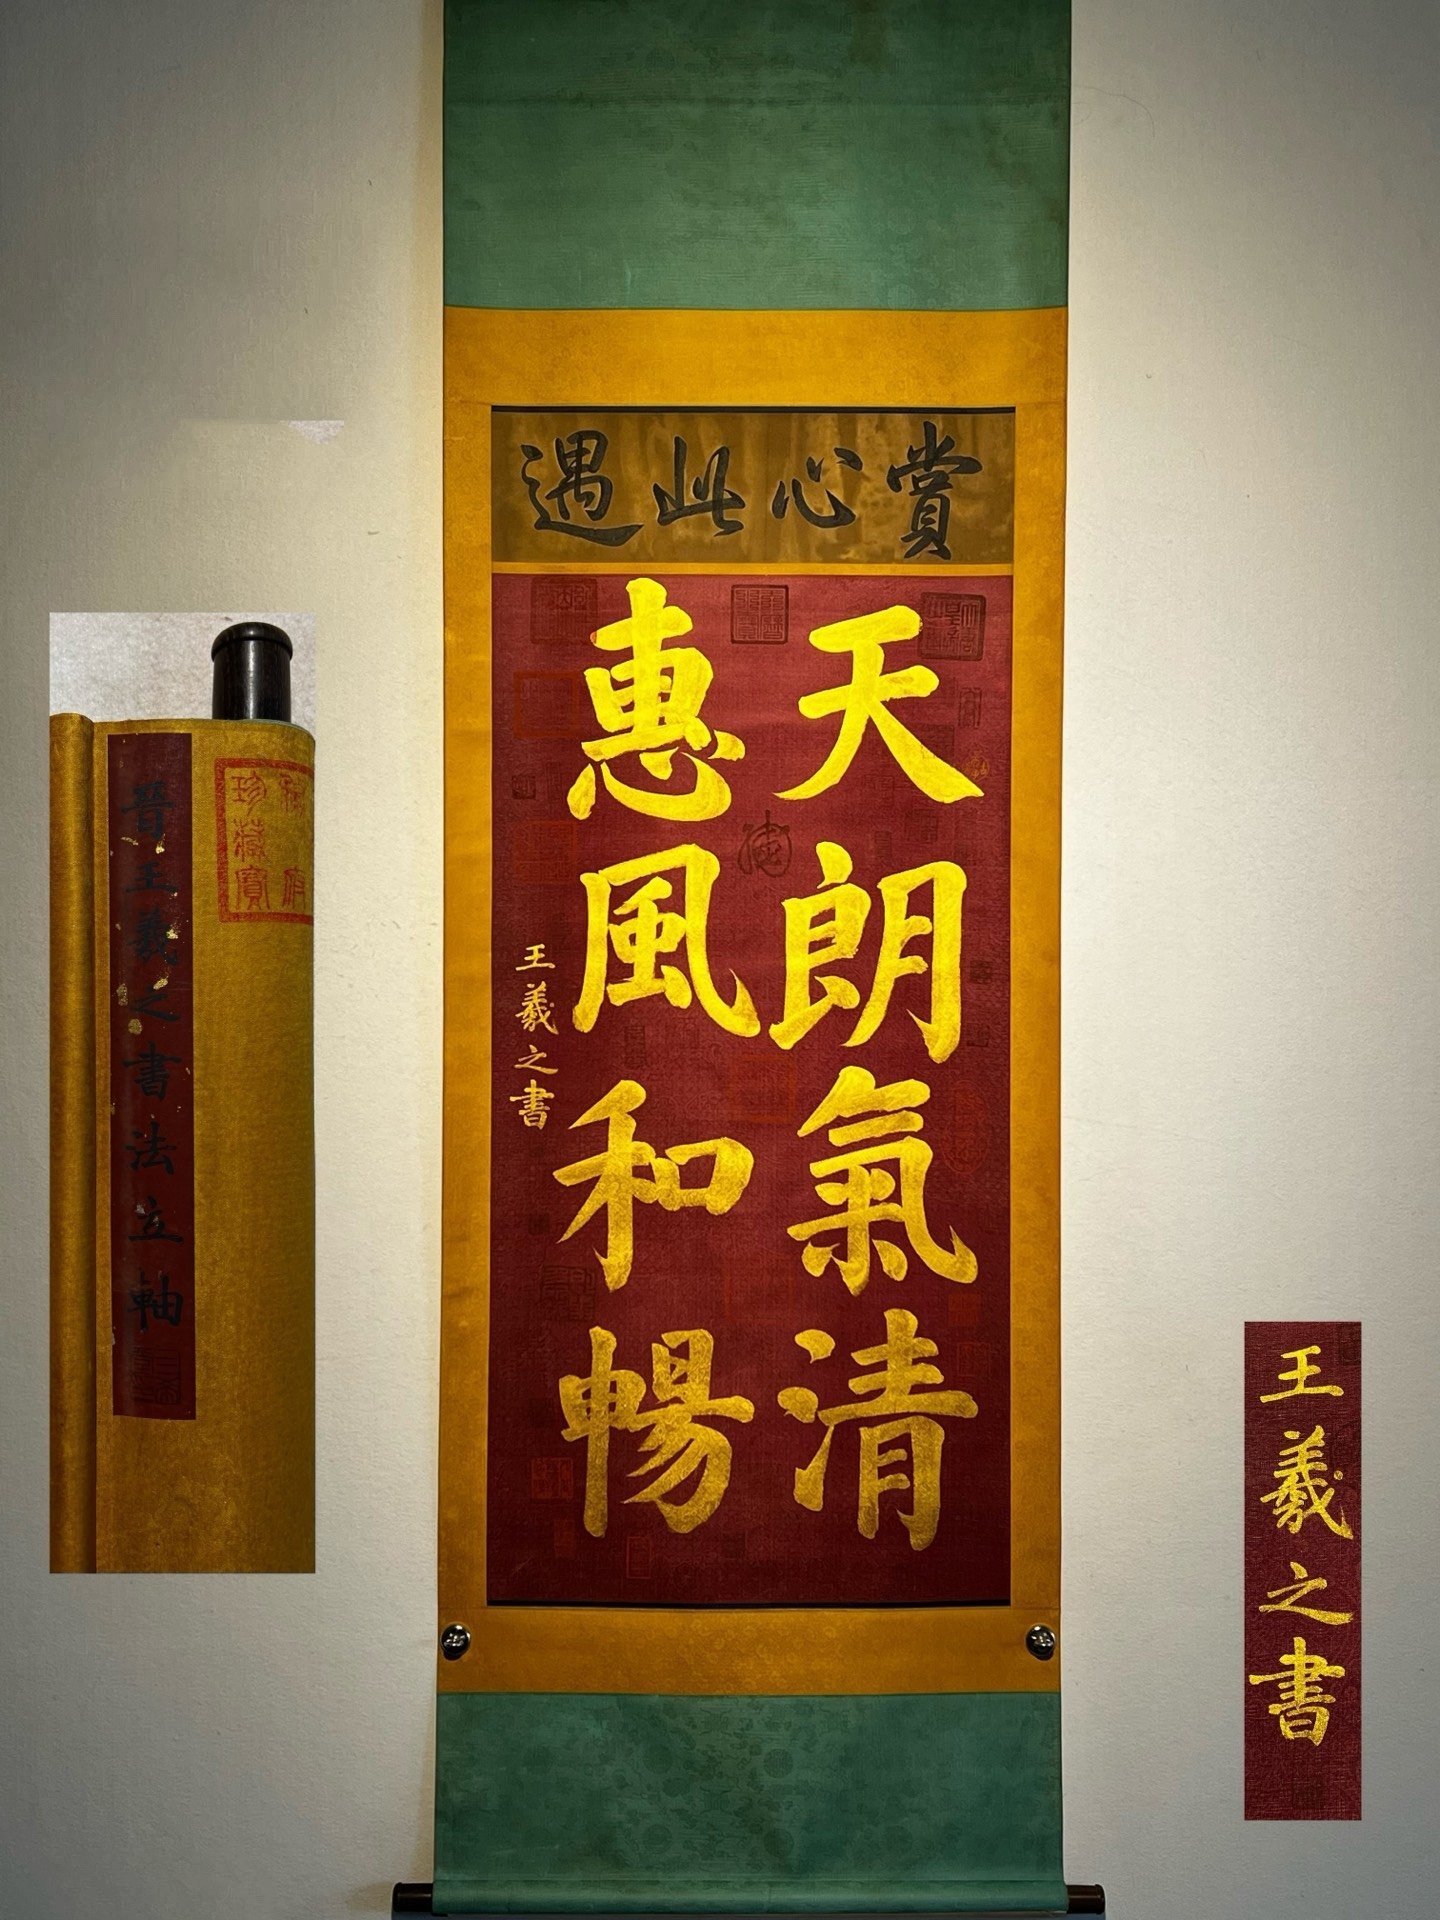 賞心此遇
天朗氣清
惠風和暢
王羲之書
晉王羲之書法立軸
珍藏寶
王羲之書